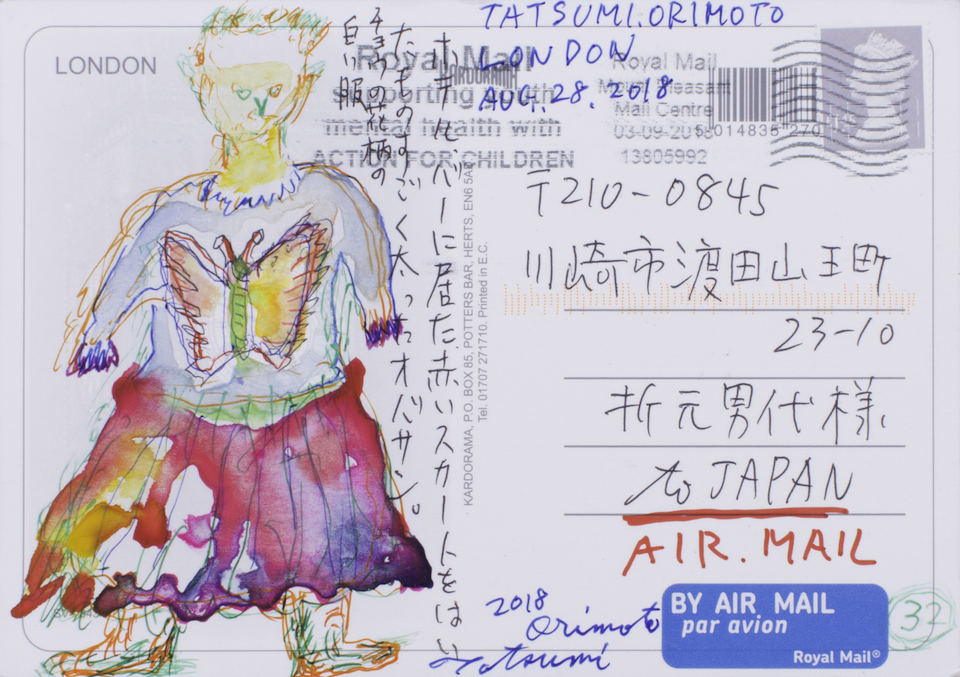 LONDON
TATSUMI.ORIMOTO
LONDON
AUG.28.2018
Royal Mail
supporting youth
mental health with
ACTION FOR CHILDREN
KARDORAMA
Royal Mail
Mount Pleasant
Mail Centre
03-09-2018
13805992
5 014835 270
ホテルバーに居た赤いスカートをはい
たものすごく太ったオバサン。
チョウの花柄の
白い服
KARDORAMA, P.O. BOX 85, POTTERS BAR, HERTS, EN6 5AD
Tel. 01707 271710. Printed in E.C.
〒210-0845
川崎市渡田山王町
23-10
折元男代様
to JAPAN
AIR.MAIL
2018
Orimoto
Tatsumi
BY AIR MAIL
par avion
Royal Mail®
32